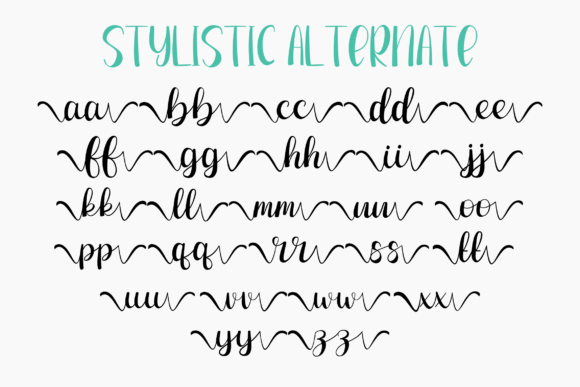 STYLISTIC ALTERNATE
aa bb cc dd ee
ff gg hh ii jj
kk ll mm nn oo
pp qq rr ss tt
uu vv ww xx
yy zz